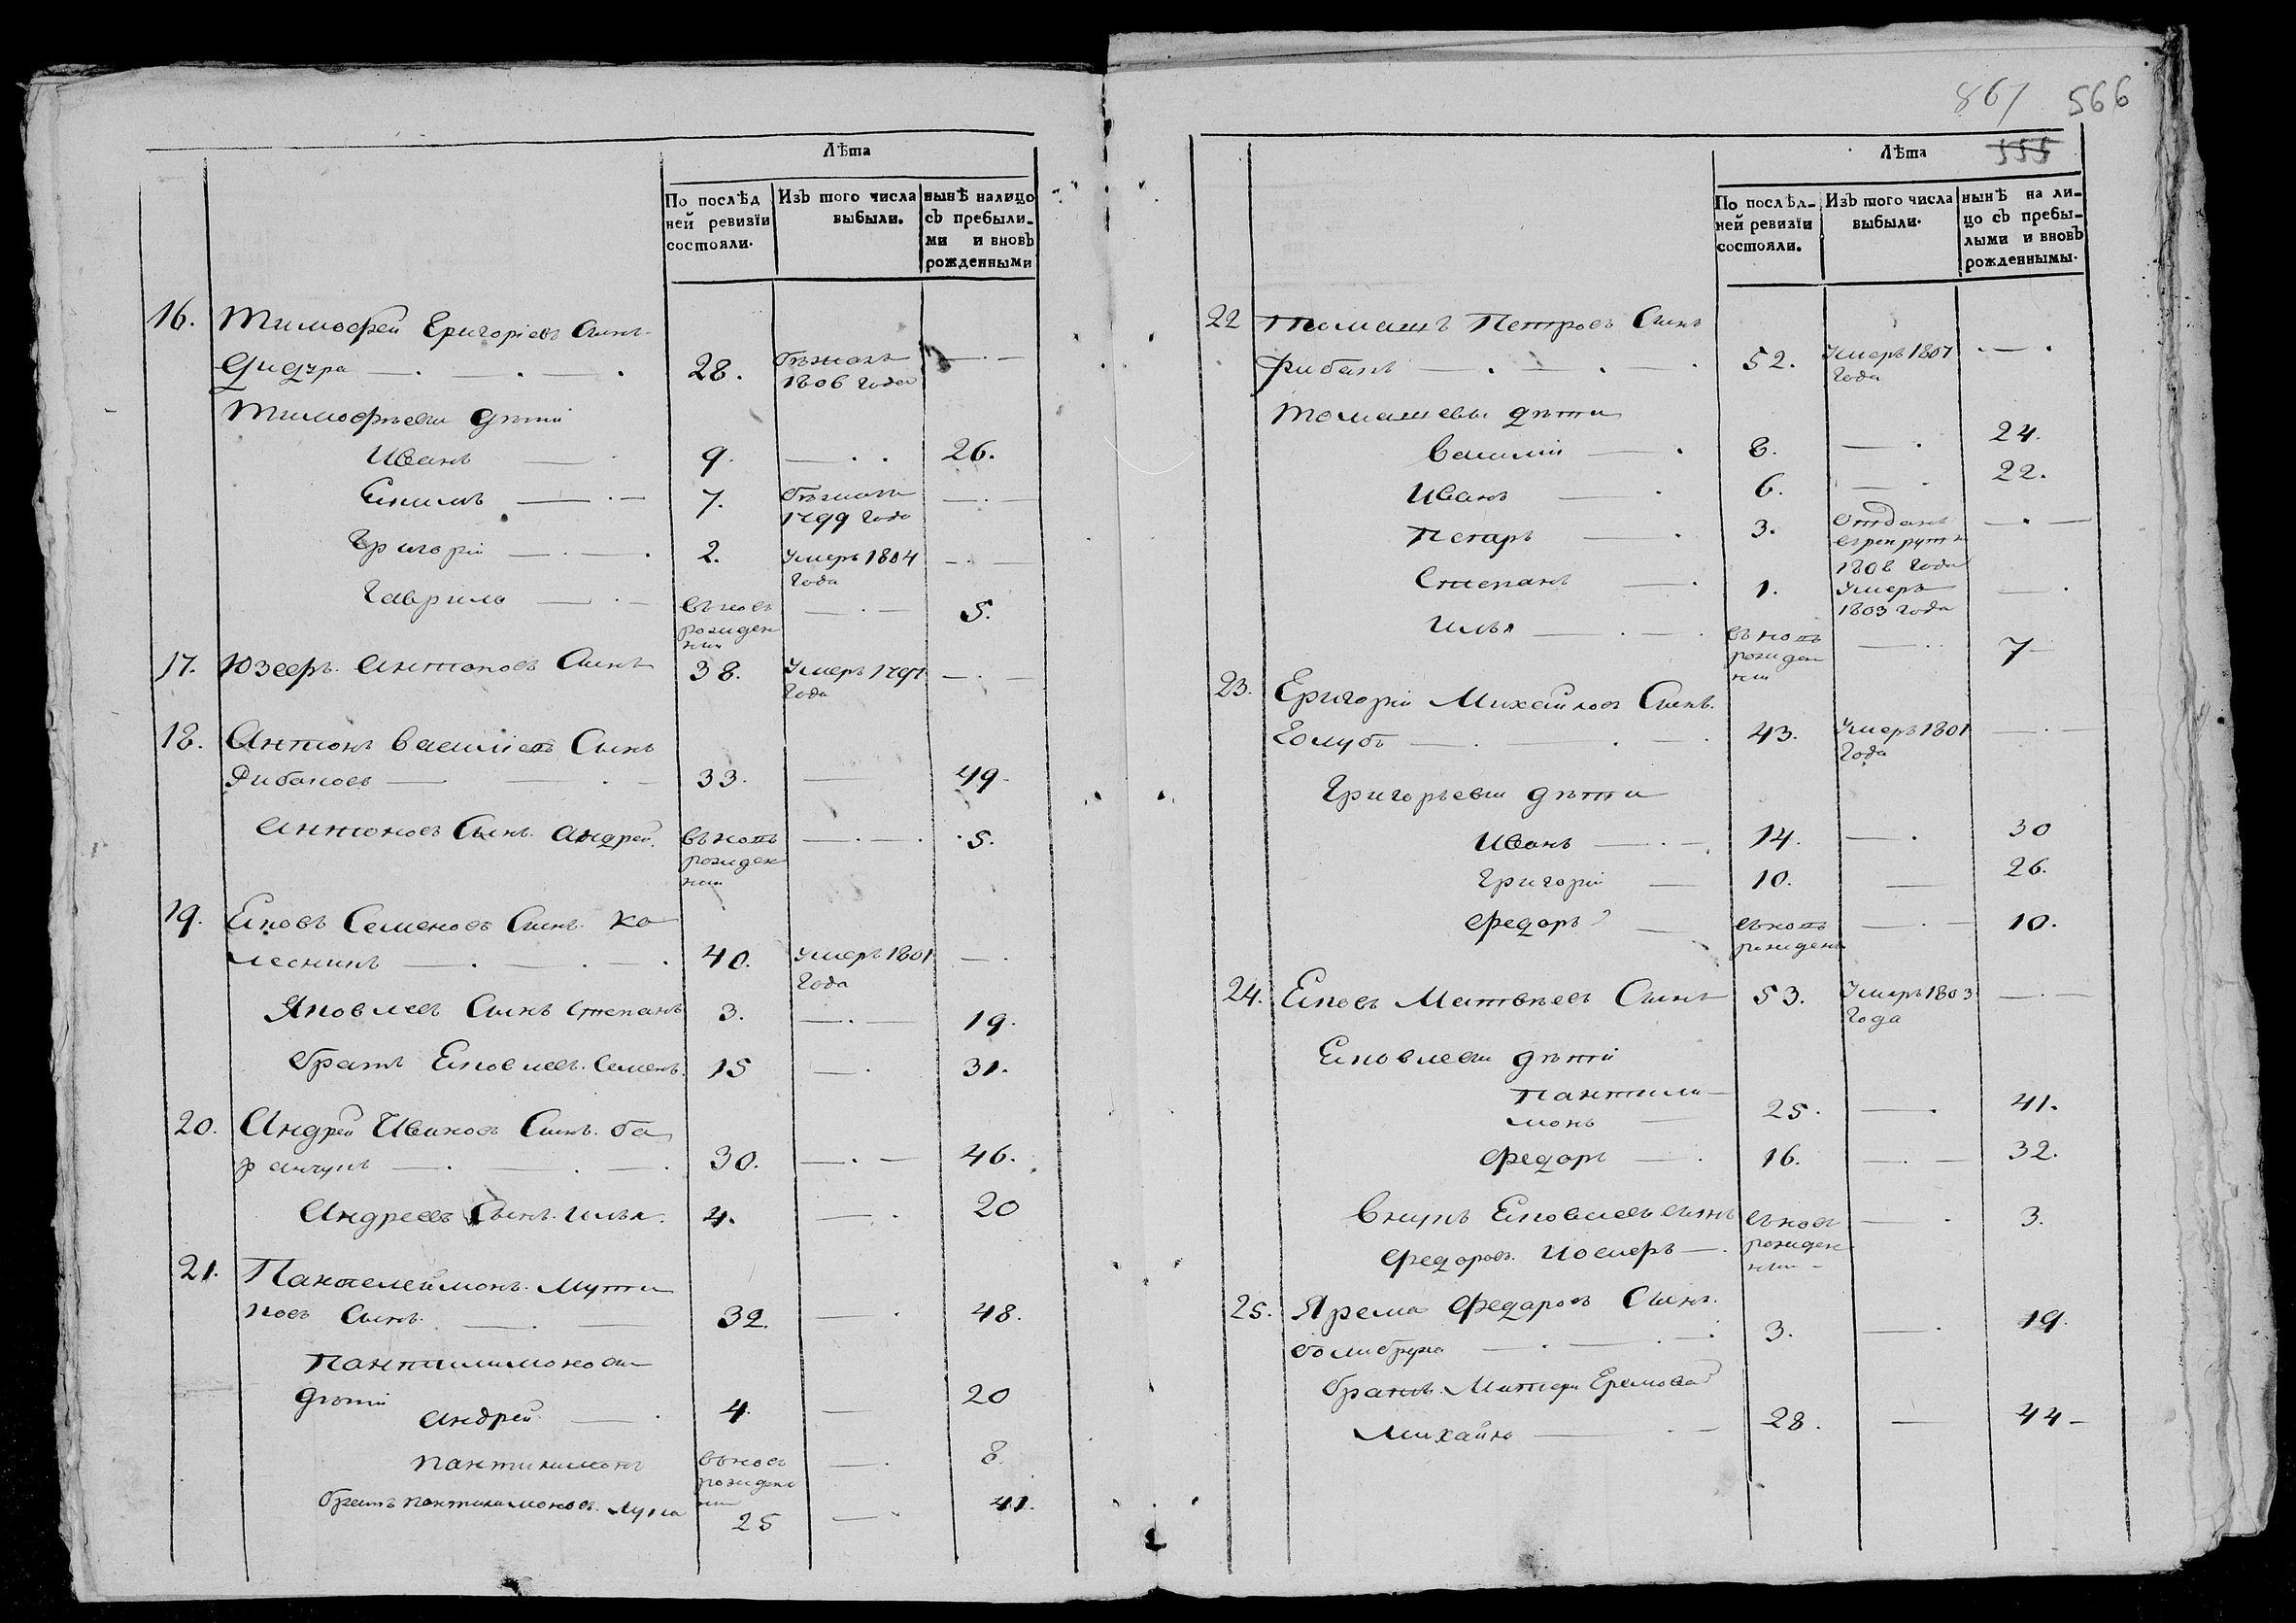 Лѣта
По послѣд
ней ревизїи
состояли.
Изъ того числа
выбыли.
нынѣ налицо
съ пребыли-
ми и вновь
рожденными
16. Тимофей Григорiевъ Сынъ
Дидура 28. бѣжалъ
1806 года
Тимофѣевы дѣти
Иванъ 9. 26.
7. бѣжалъ
1799 года
Григорiй 2. Умеръ 1804
года
Гаврило вновь
рожден
ный 5.
17. Юзефъ Антоновъ Сынъ 38. Умеръ 1797
года
18. Антонъ Василiевъ Сынъ
Рибаковъ 33. 49.
Антоновъ Сынъ Андрей вновь
рожден
ный 5.
19. Яковъ Семеновъ Сынъ Ко
лесникъ 40. Умеръ 1801
года
Яковлевъ Сынъ Степанъ 3. 19.
братъ Яковлевъ Семенъ 15 31.
20. Андрей Ивановъ Сынъ ба
ранчукъ 30. 46.
Андреевъ Сынъ Илья 4. 20
21. Пантелеймонъ
Сынъ 32. 48.
Пантилимоновы
дѣти
Андрей 4. 20
Пантилимонъ вновь
рожден
ный 8.
братъ Пантилимоновъ Лука 25 41.
867 566
555
Лѣта
По послѣд-
ней ревизїи
состояли.
Изъ того числа
выбыли.
нынѣ на ли-
цо съ пребы-
лыми и вновь
рожденнымы.
22 Томашъ Петровъ Сынъ
Рибакъ 52. Умеръ 1807
года
Томашевы дѣти
Василiй 8. 24.
Иванъ 6. 22.
Петръ 3. Отданъ
в рекруты
1808 года
Степанъ 1. Умеръ
1803 года
Илья вновь
рожден
ный 7
23. Григорiй Михайловъ Сынъ
Голубъ 43. Умеръ 1801
года
Григорьевы дѣти
Иванъ 14. 30
Григорiй 10. 26.
Федоръ вновь
рожденъ 10.
24. Яковъ Матвѣевъ Сынъ 53. Умеръ 1803
года
Яковлевы дѣти
Пантили
монъ 25. 41.
Федоръ 16. 32.
Внукъ Яковлевъ сынъ вновь
Федоровъ Иосифъ рожден
ный 3.
25. Ярема Федаровъ Сынъ
3. 19.
Михайло 28. 44